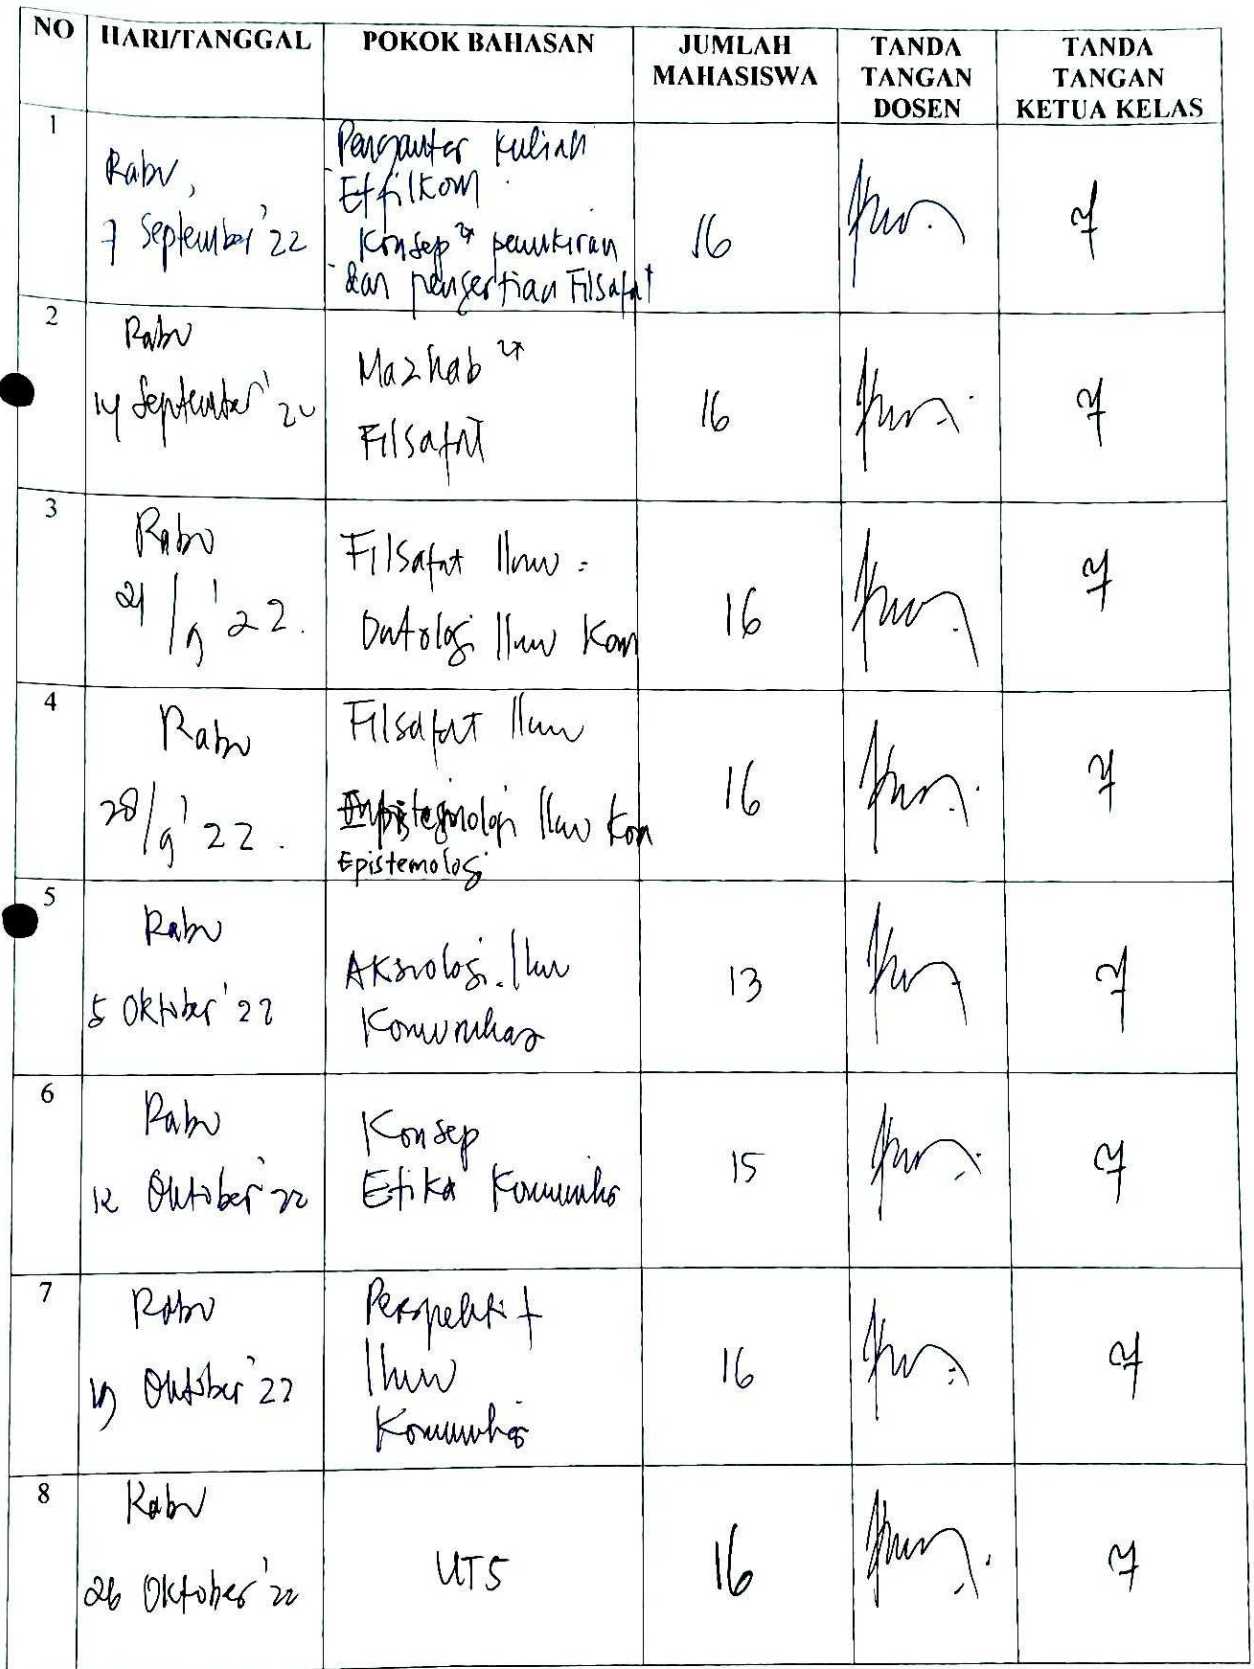 NO HARI/TANGGAL POKOK BAHASAN JUMLAH MAHASISWA TANDA TANGAN DOSEN TANDA TANGAN KETUA KELAS
1
Rabu,
7 September '22
Pengantar Kuliah
Etfilkom
Konsep² pemikiran
dan pengertian Filsafat
16
2
Rabu
14 September '22
Mazhab²
Filsafat
16
3
Rabu
21/9 '22.
Filsafat Ilmu:
Ontologi Ilmu Kom
16
4
Rabu
28/9 '22.
Filsafat Ilmu
Ilmu Kom
Epistemologi
16
5
Rabu
5 Oktober '22
Aksiologi Ilmu
Komunikasi
13
6
Rabu
12 Oktober '22
Konsep
Etika Komunikasi
15
7
Rabu
19 Oktober '22
Perspektif
Ilmu
Komunikasi
16
8
Rabu
26 Oktober '22
UTS
16